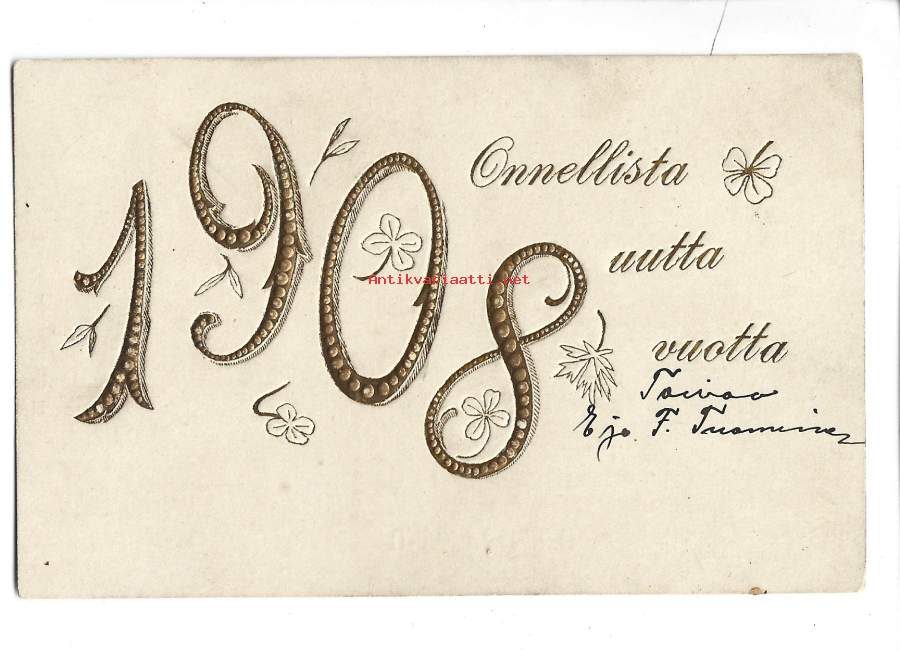 1908
Onnellista
uutta
vuotta
Toivoo
E ja F. Tuominen
Antikvariaatti.net